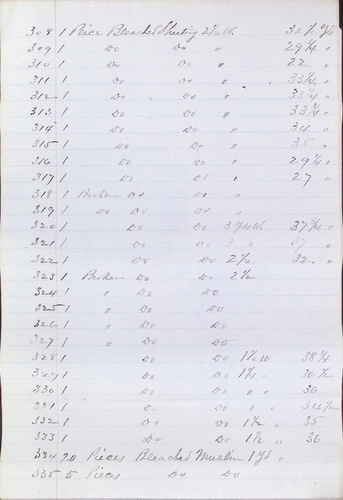 308 1 Piece Bleached Sheeting 2½ Wh 32½ yds
309 1 Do Do " 29¼ "
310 1 Do Do " 22 "
311 1 Do Do " 33¼ "
312 1 Do Do " 33¼ "
313 1 Do Do " 33¾ "
314 1 Do Do " 34 "
315 1 Do Do " 35 "
316 1 Do Do " 29¼ "
317 1 Do Do " 27 "
318 1 Broken Do Do "
319 1 Do Do Do "
320 1 Do Do 3 37¾ "
321 1 Do Do 3 " 37 "
322 1 Do Do 2½ 32 "
323 1 Broken Do Do 2½
324 1 " Do Do
325 1 " Do Do
326 1 " Do Do
327 1 " Do Do
328 1 Do Do 38¼
329 1 Do Do 36½
330 1 Do Do " " 36
331 1 Do Do " " 34½
332 1 Do Do 1½ " 35
333 1 Do Do 1½ " 36
334 20 Pieces Bleached Muslin 1 Yd "
335 5 Pieces Do Do